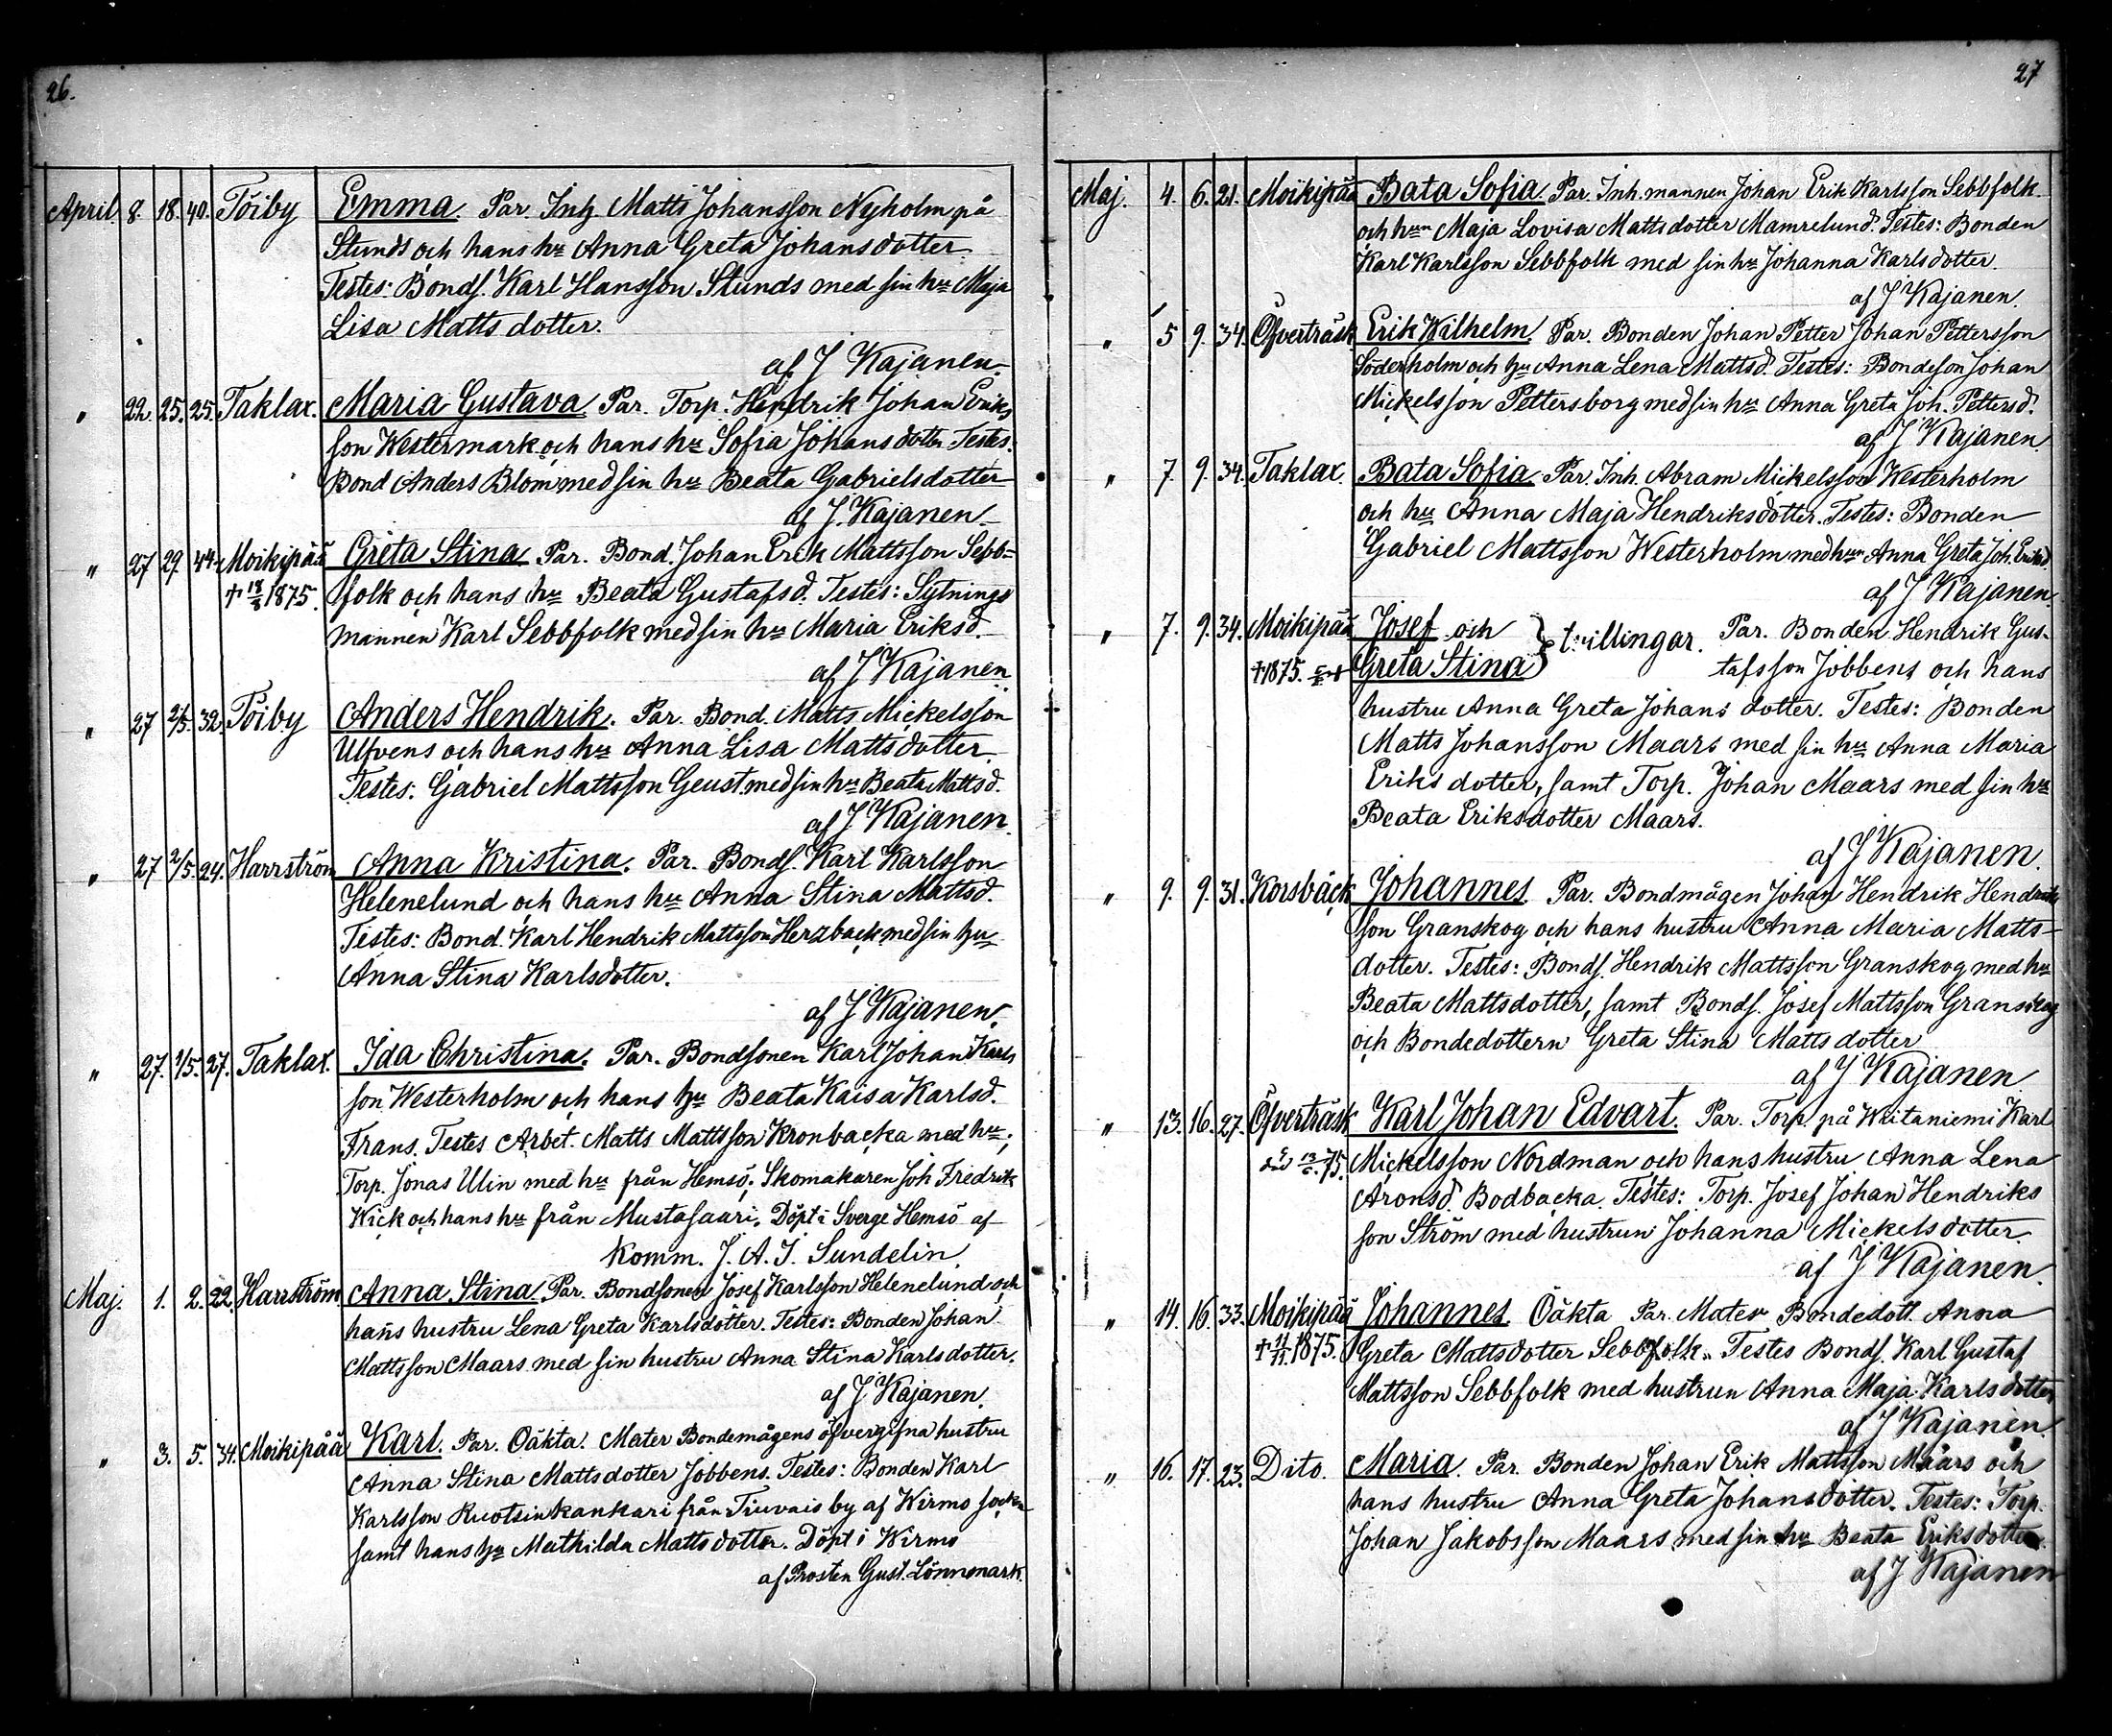 26.
April. 8. 18. 40. Töiby Emma. Par. Inh. Matts Johansson Nyholm på
Stunds och hans hu Anna Greta Johansdotter.
Testes: Bonds. Karl Hansson Stunds med sin hu Maja
Lisa Mattsdotter.
af J Kajanen.
" 22. 25. 25. Taklax. Maria Gustava. Par. Torp. Hendrik Johan Eriks
son Westermark och hans hu Sofia Johansdotter. Testes:
Bond Anders Blom med sin hu Beata Gabrielsdotter
af J. Kajanen.
" 27 29 44. Moikipää Greta Stina. Par. Bond. Johan Erik Mattsson Sebb=
† 18/8 1875. folk och hans hu Beata Gustafsd. Testes: Sytnings
mannen Karl Sebbfolk med sin hu Maria Eriksd.
af J Kajanen.
" 27 2/5. 32. Töiby Anders Hendrik. Par. Bond. Matts Mickelsson
Ulfvens och hans hu Anna Lisa Mattsdotter.
Testes: Gabriel Mattsson Geust med sin hu Beata Mattsd.
af J Kajanen.
" 27 2/5. 24. Harrström Anna Kristina. Par. Bonds. Karl Karlsson
Helenelund och hans hu Anna Stina Mattsd.
Testes: Bond. Karl Hendrik Mattsson Herzback med sin hu
Anna Stina Karlsdotter.
af J Kajanen.
" 27. 1/5. 27. Taklax. Ida Christina. Par. Bondsonen Karl Johan Karls
son Westerholm och hans hu Beata Kaisa Karlsd.
Frans. Testes Arbet. Matts Mattsson Kronbacka med hu;
Torp. Jonas Ulin med hu från Hemsö; Skomakaren Joh Fredrik
Wick och hans hu från Mustasaari. Döpt i Sverge Hemsö af
Komm. J. A. J. Sundelin.
Maj. 1. 2. 22. Harrström Anna Stina. Par. Bondsonen Josef Karlsson Helenelund och
hans hustru Lena Greta Karlsdotter. Testes: Bonden Johan
Mattsson Maars med sin hustru Anna Stina Karlsdotter.
af J Kajanen.
" 3. 5. 34. Moikipää Karl. Par. Oäkta. Mater Bondemågens öfvergifna hustru
Anna Stina Mattsdotter Jobbens. Testes: Bonden Karl
Karlsson Ruotsinkankari från Tiuvais by af Wirmo socken
samt hans hu Mathilda Mattsdotter. Döpt i Wirmo
af Prosten Gust. Lönnmark.
27
Maj. 4. 6. 21. Moikipää Bata Sofia. Par. Inh. mannen Johan Erik Karlsson Sebbfolk
och hun Maja Lovisa Mattsdotter Mamrelund. Testes: Bonden
Karl Karlsson Sebbfolk med sin hu Johanna Karlsdotter.
af J Kajanen.
" 5 9. 34. Öfverträsk Erik Wilhelm. Par. Bonden Johan Petter Johan Pettersson
Söderholm och hu Anna Lena Mattsd. Testes: Bondeson Johan
Mickelsson Pettersborg med sin hu Anna Greta Joh. Pettersd.
af J Kajanen.
" 7. 9. 34. Taklax. Bata Sofia. Par. Inh. Abram Mickelsson Westerholm
och hu Anna Maja Hendriksdotter. Testes: Bonden
Gabriel Mattsson Westerholm med hun Anna Greta Joh. Eriksd.
af J Kajanen.
" 7. 9. 34. Moikipää Josef och } tvillingar. Par. Bonden Hendrik Gus-
† 1875. Greta Stina } tafsson Jobbens och hans
hustru Anna Greta Johansdotter. Testes: Bonden
Matts Johansson Maars med sin hu Anna Maria
Eriksdotter, samt Torp. Johan Maars med sin hu
Beata Eriksdotter Maars.
af J Kajanen.
" 9. 9. 31. Korsbäck Johannes. Par. Bondmågen Johan Hendrik Hendriks
son Granskog och hans hustru Anna Maria Matts-
dotter. Testes: Bonds. Hendrik Mattsson Granskog med hu
Beata Mattsdotter, samt Bonds. Josef Mattsson Granskog
och Bondedottern Greta Stina Mattsdotter
af J Kajanen
" 13. 16. 27. Öfverträsk Karl Johan Edvart. Par. Torp. på Waitaniemi Karl
75. Mickelsson Nordman och hans hustru Anna Lena
Aronsd. Bodbacka. Testes: Torp. Josef Johan Hendriks
son Ström med hustrun Johanna Mickelsdotter
af J Kajanen.
" 14. 16. 33. Moikipää Johannes. Oäkta Par. Mater Bondedott. Anna
† 1875. Greta Mattsdotter Sebbfolk. Testes Bonds. Karl Gustaf
Mattsson Sebbfolk med hustrun Anna Maja Karlsdotter
af J Kajanen.
" 16. 17. 23. Dito. Maria. Par. Bonden Johan Erik Mattsson Maars och
hans hustru Anna Greta Johansdotter. Testes: Torp.
Johan Jakobsson Maars med sin hu Beata Eriksdotter.
af J Kajanen